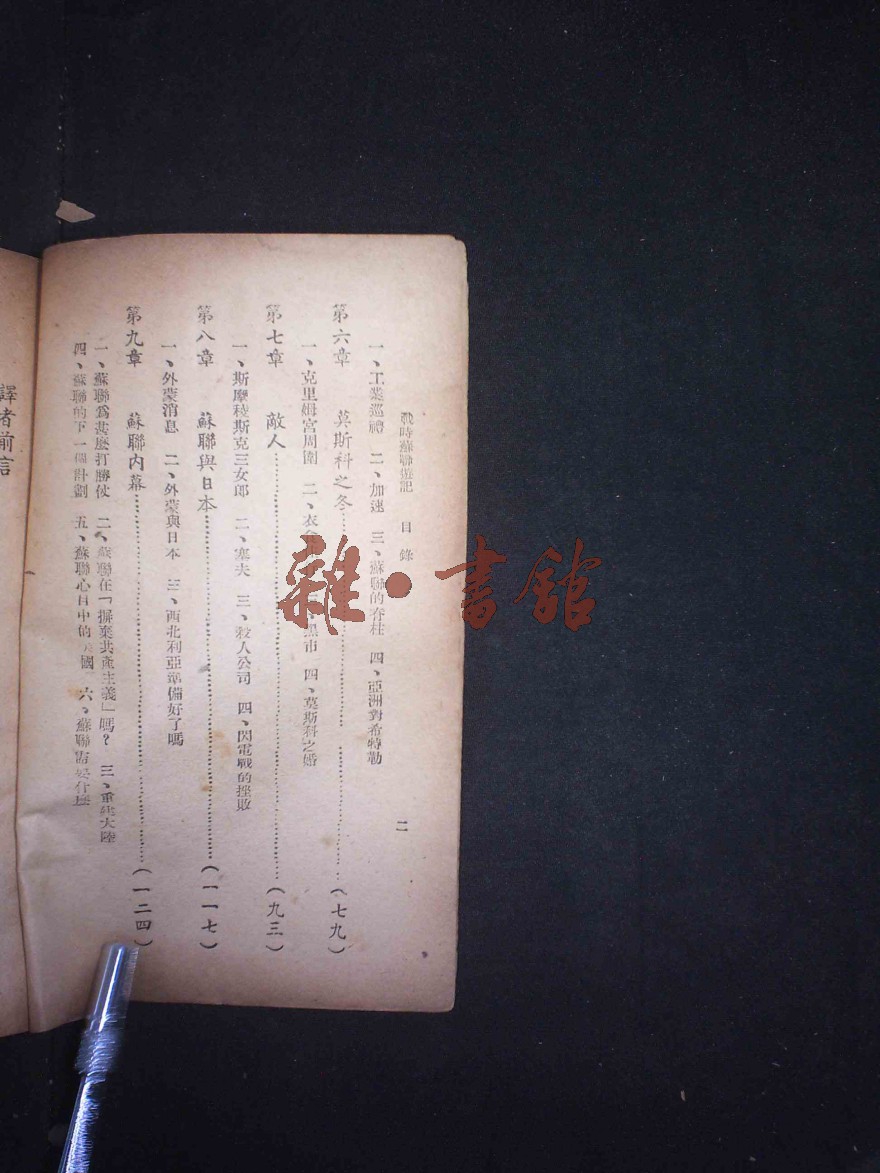 戰時蘇聯遊記 目錄 二
一、工業巡禮 二、加速 三、蘇聯的脊柱 四、亞洲對希特勒
第六章 莫斯科之冬……(七九)
一、克里姆宮周圍 二、衣 黑市 四、莫斯科之婚
第七章 敵人……(九三)
一、斯摩稜斯克三女郎 二、塞夫 三、殺人公司 四、閃電戰的挫敗
第八章 蘇聯與日本……(一一七)
一、外蒙消息 二、外蒙與日本 三、西北利亞準備好了嗎
第九章 蘇聯內幕……(一二四)
一、蘇聯爲甚麼打勝仗 二、蘇聯在「摒棄共產主義」嗎？ 三、重建大陸
四、蘇聯的下一個計劃 五、蘇聯心目中的 國 六、蘇聯需要什麼
譯者前言
雜·書館